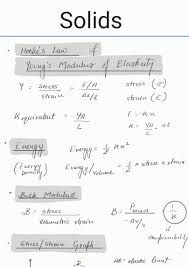 Solids
• Hooke's Law &
Young's Modulus of Elasticity
Y = stress/strain = F/A / Δl/l
stress (σ)
strain (ε)
K equivalent = YA/L
F = Kx
K = YA/L, Δl
• Energy
Energy = 1/2 Kx²
(Energy density)
Energy/Volume = 1/2 × stress × strain
• Bulk Modulus
B = stress/volumetric strain
B = P/ΔV/V
1/K
compressibility
• Stress/Strain Graph
elastic limit